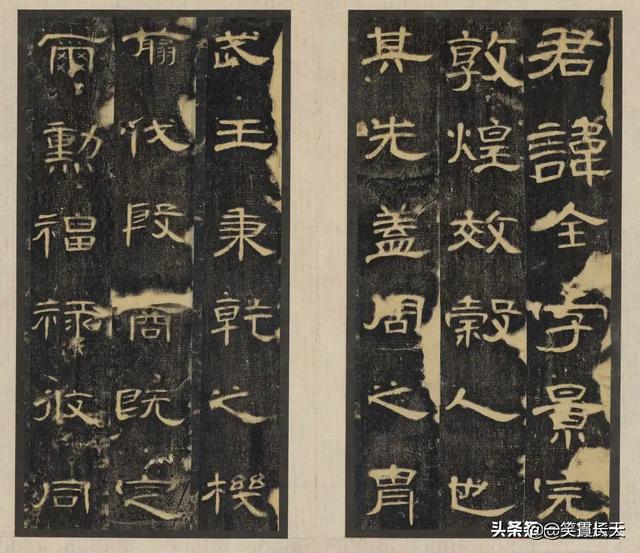 君諱全字景完
敦煌效穀人也
其先蓋周之胄
武王秉乾之機
翦伐殷商既定
爾勳福祿攸同
头条@笑贯长天